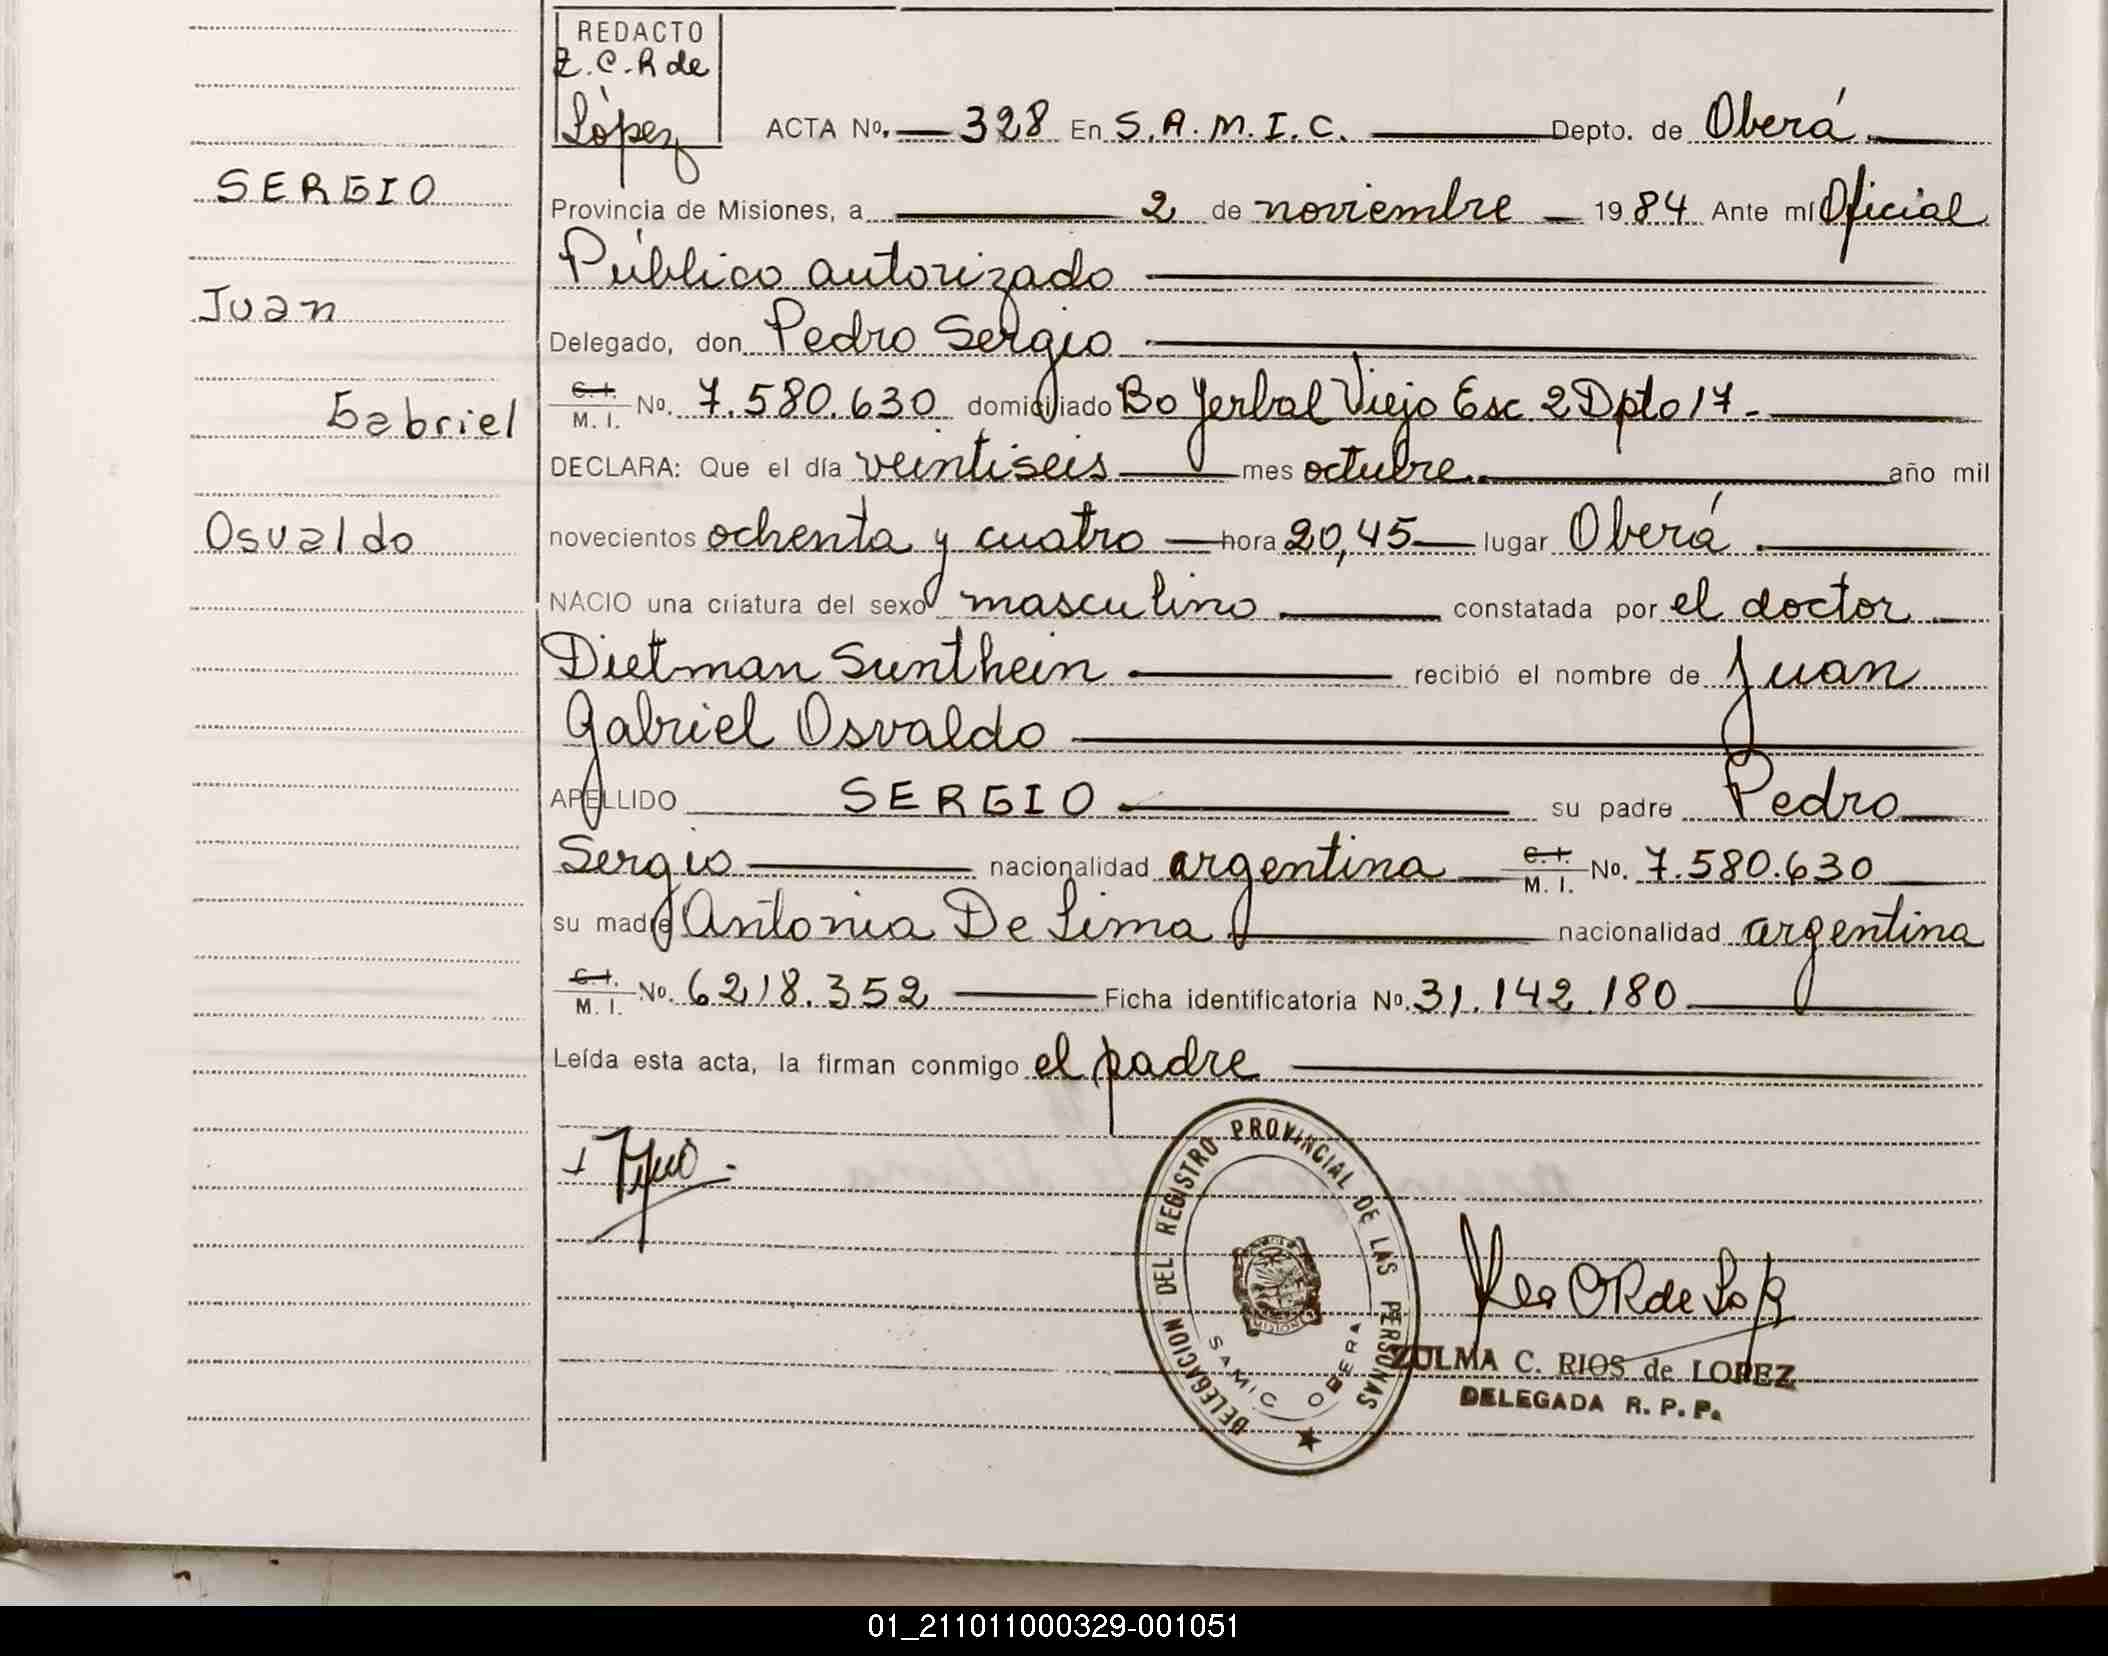 REDACTO
Z.C.R de
López
ACTA No. 328 En S.A.M.I.C. Depto. de Oberá
Provincia de Misiones, a 2 de noviembre 1984 Ante mí Oficial
Público autorizado
Delegado, don Pedro Sergio
C.I. M.I. No. 7.580.630 domiciliado Bo Yerbal Viejo Esc 2 Dpto 17.
DECLARA: Que el día veintiseis mes octubre. año mil
novecientos ochenta y cuatro hora 20,45 lugar Oberá.
NACIO una criatura del sexo masculino constatada por el doctor
Dietman Sunthein recibió el nombre de Juan
Gabriel Osvaldo
APELLIDO SERGIO su padre Pedro
Sergio nacionalidad argentina C.I. M.I. No. 7.580.630
su madre Antonia De Lima nacionalidad argentina
C.I. M.I. No. 6.218.352 Ficha identificatoria No. 31.142.180
Leída esta acta, la firman conmigo el padre
SERGIO
Juan
Gabriel
Osvaldo
DELEGACION DEL REGISTRO PROVINCIAL DE LAS PERSONAS
SAMIC OBERA
ZULMA C. RIOS de LOPEZ
DELEGADA R.P.P.
01_211011000329-001051